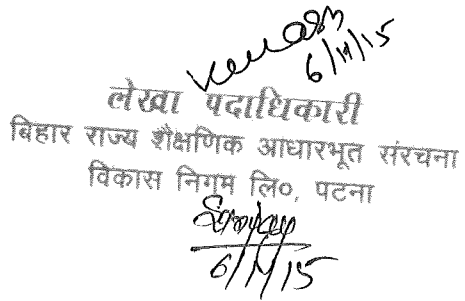 6/11/15
लेखा पदाधिकारी
बिहार राज्य शैक्षणिक आधारभूत संरचना
विकास निगम लि०, पटना
6/11/15